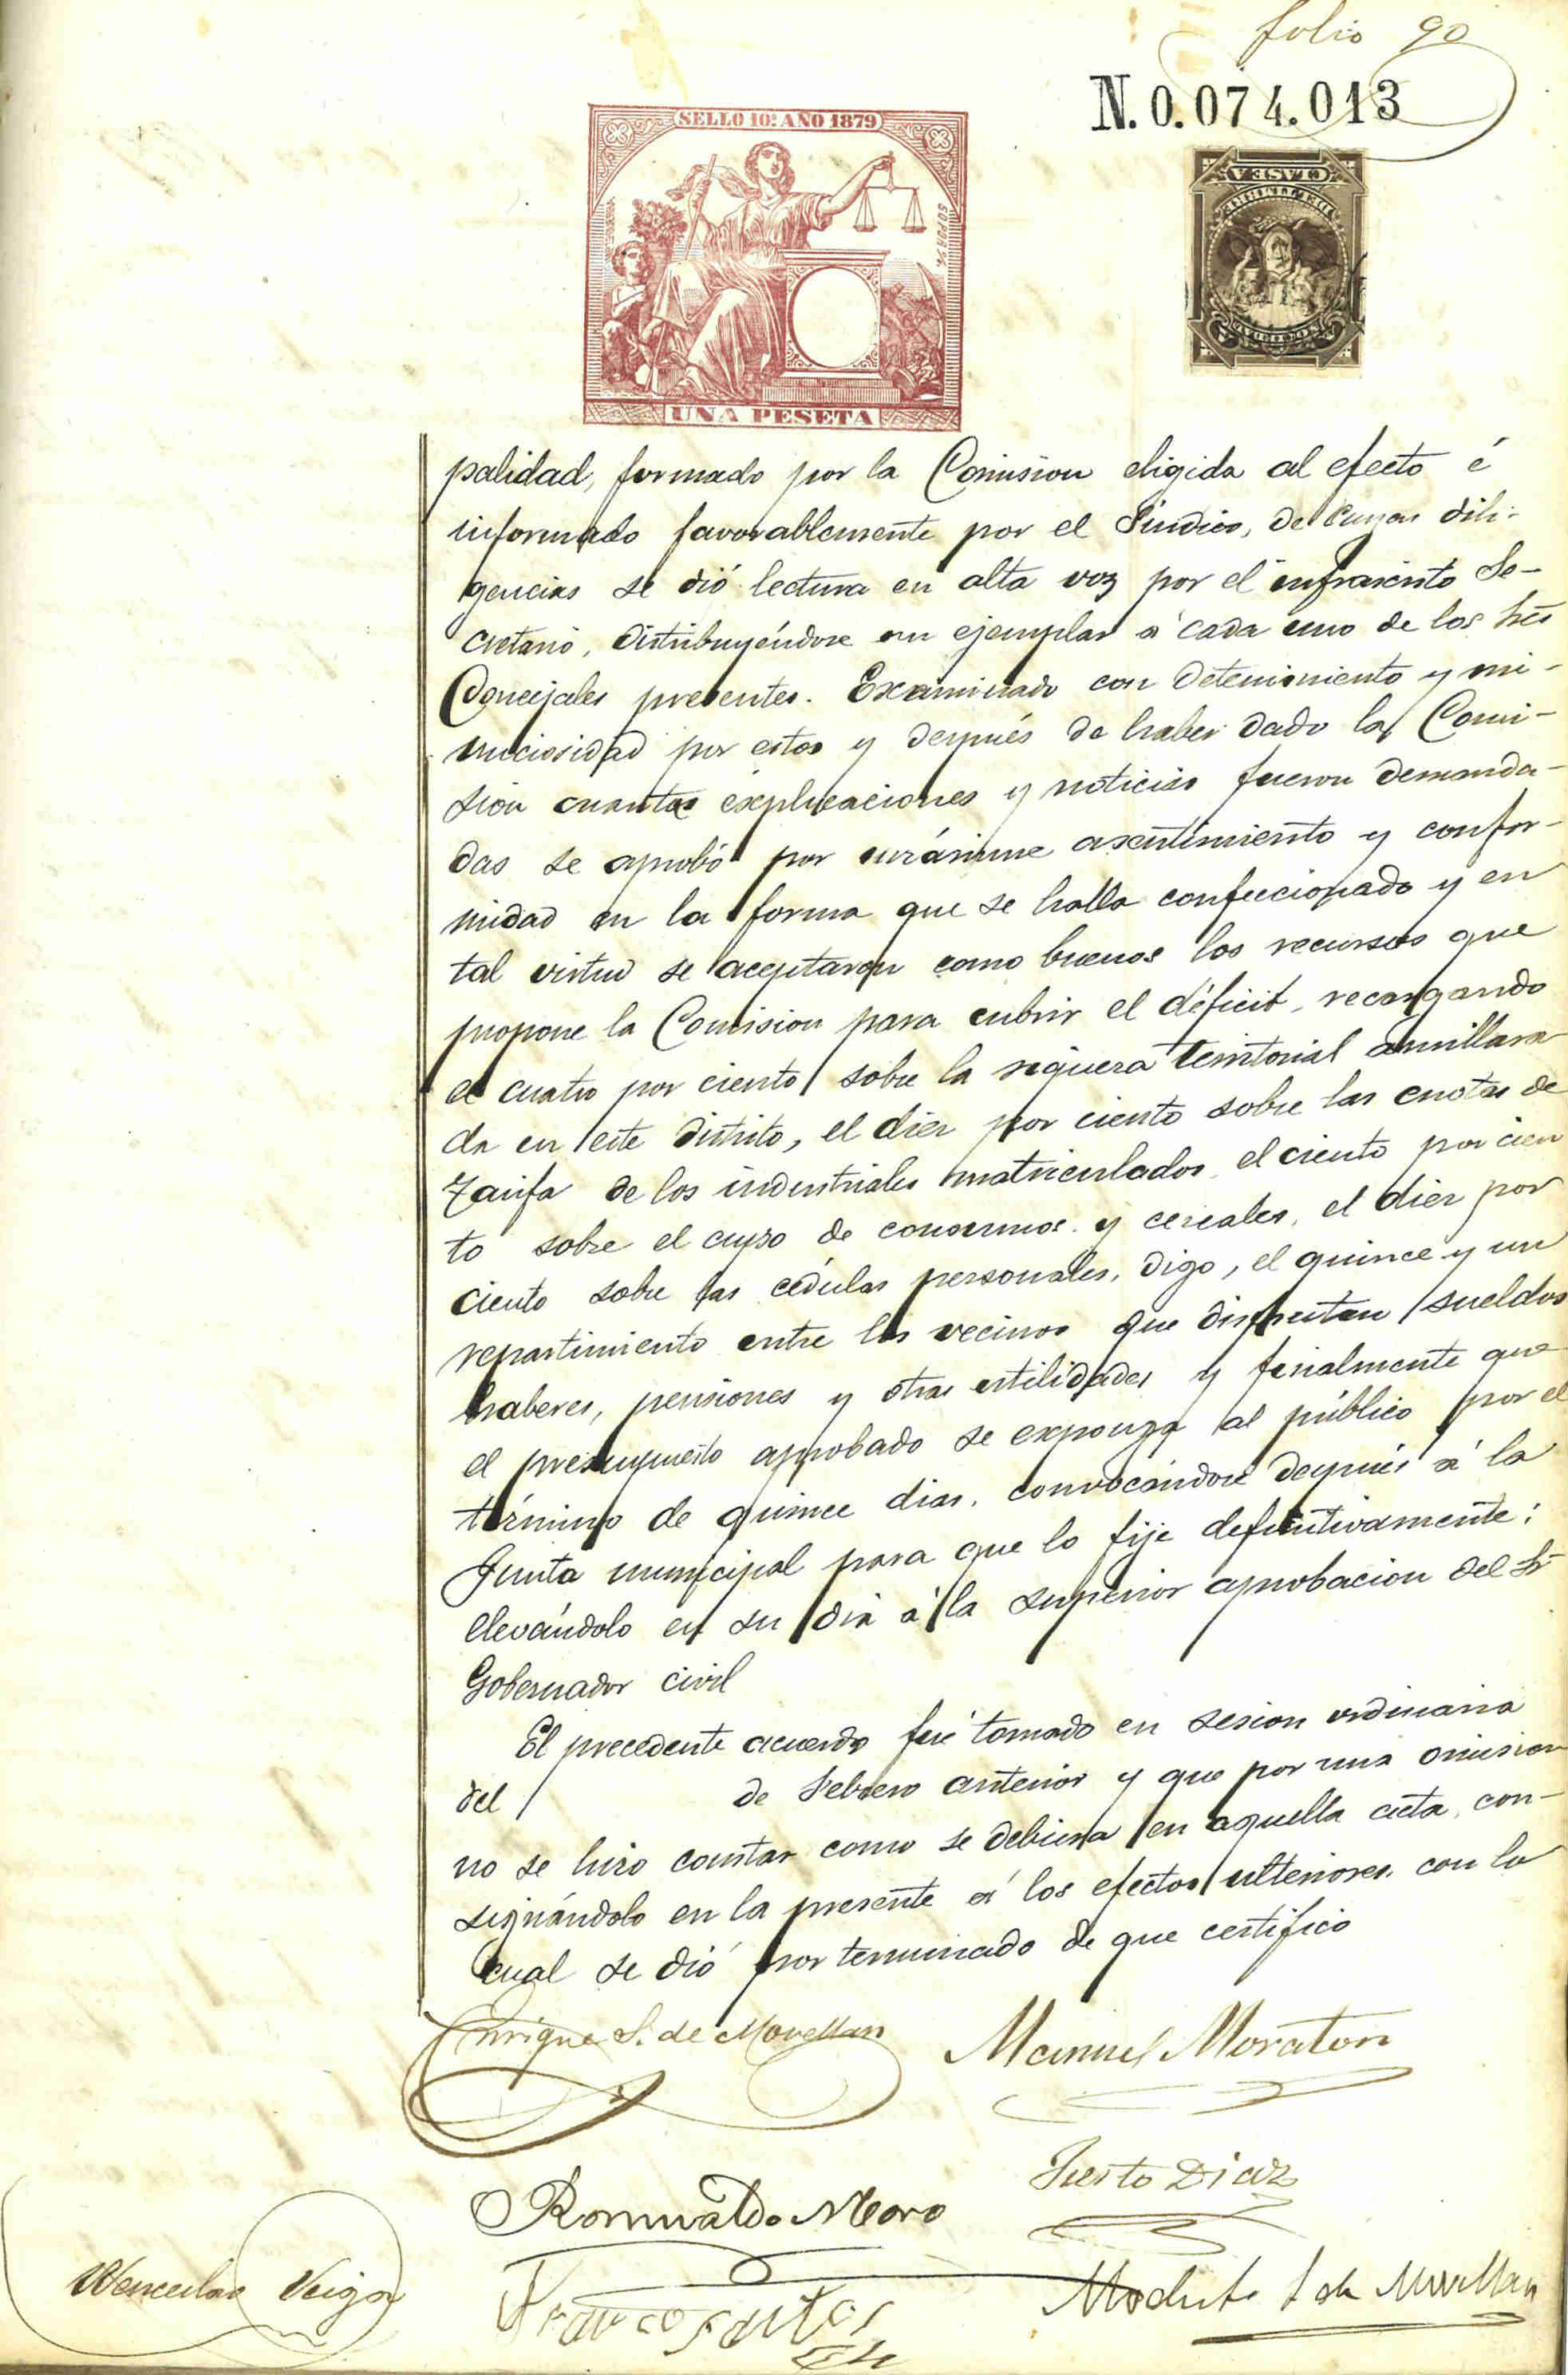 folio 90
N. 0.074.013
SELLO 10º AÑO 1879
UNA PESETA
palidad, formado por la Comision eligida al efecto é
informado favorablemente por el Síndico, de cuyas dili-
gencias se dió lectura en alta voz por el infrascrito Se-
cretario, distribuyéndose un ejemplar á cada uno de los tres
Concejales presentes. Examinado con detenimiento y mi-
nuciosidad por estos y después de haber dado la Comi-
sion cuantas explicaciones y noticias fueron demanda-
das se aprobó por unánime asentimiento y confor-
midad en la forma que se halla confeccionado y en
tal virtud se aceptaron como buenos los recursos que
propone la Comision para cubrir el déficit, recargando
el cuatro por ciento sobre la riquera territorial amillara
da en este distrito, el dier por ciento sobre las cuotas de
Tarifa de los industriales matriculados, el ciento por cien
to sobre el cupo de consumos y cereales, el dier por
ciento sobre las cédulas personales, digo, el quince y un
repartimiento entre los vecinos que disfrutan sueldos
haberes, pensiones y otras utilidades y finalmente que
el presupuesto aprobado se exponga al público por el
término de quince dias, convocándose después á la
Junta municipal para que lo fije definitivamente;
elevándolo en su dia á la superior aprobacion del Sr
Gobernador civil
El precedente acuerdo fué tomado en sesion ordinaria
del de Febrero anterior y que por una omision
no se hizo constar como se debiera en aquella acta, con-
signándolo en la presente á los efectos ulteriores, con lo
cual se dió por terminado de que certifico
Enrique S. de Movellan Manuel Moraton
Justo Diaz
Romualdo Moro
Wenceslao Veiga
Modesto S de Movellan